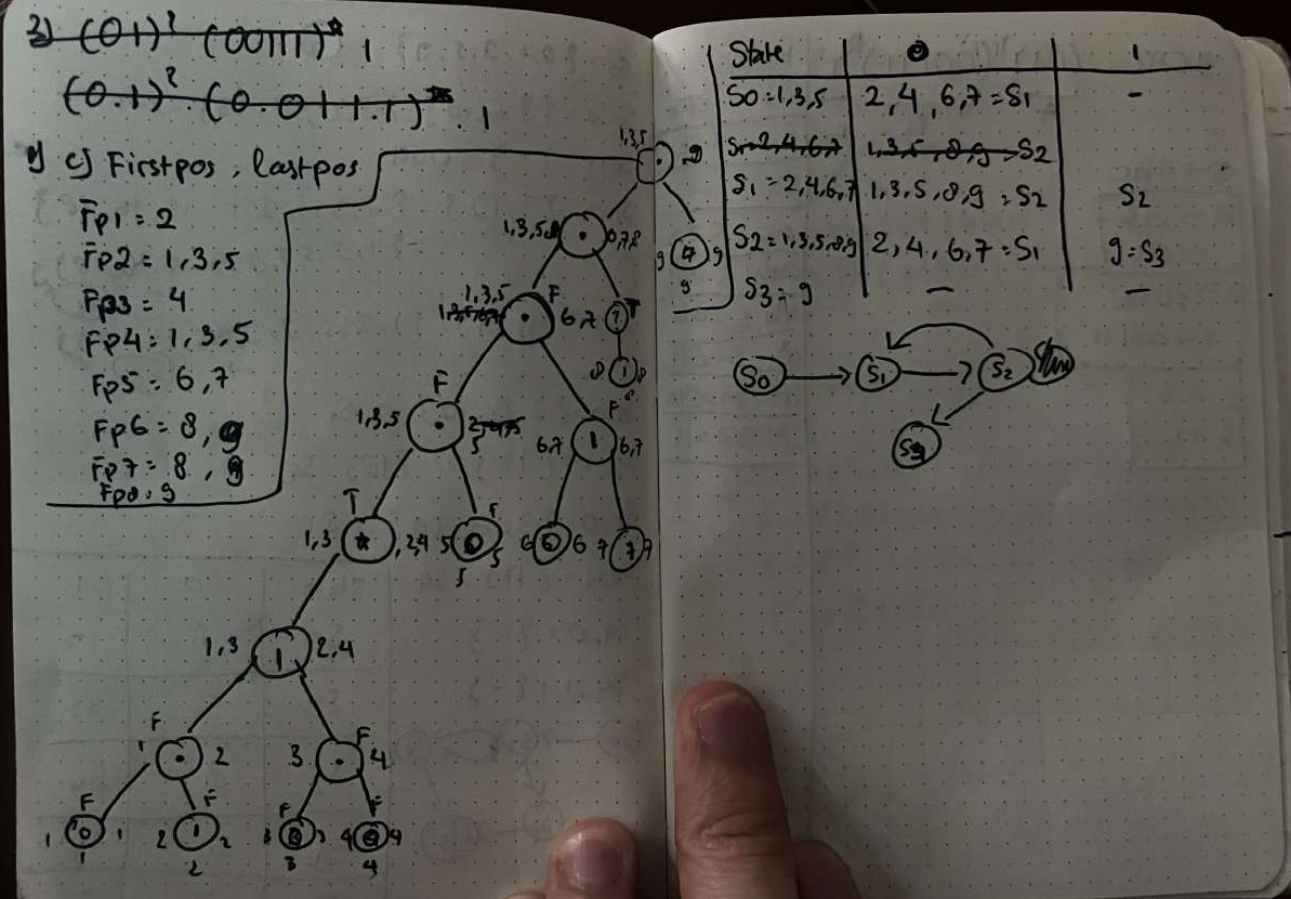 3) (01)? (00111)* 1
(0.1)? . (0.011.1)* . 1
c) Firstpos, lastpos
Fp1 = 2
Fp2 = 1,3,5
Fp3 = 4
Fp4 = 1,3,5
Fp5 = 6,7
Fp6 = 8, 9
Fp7 = 8, 9
Fp8 = 9
1,3,5 . 9
1,3,5 .
9 9
9
1,3,5 F
. 6,7 ? T
8 1 8
F
1,3,5 . 5
F
6,7 | 6,7
T
1,3 * 2,4
F
5 0 5
5
6 0 6
7 7
1,3 | 2,4
F
1 . 2
F
3 . 4
F
1 0 1
1
F
2 1 2
2
F
3 0 3
3
F
4 0 4
4
State 0 1
S0 = 1,3,5 2,4,6,7 = S1 -
S1 = 2,4,6,7 1,3,5,8,9 = S2
S1 = 2,4,6,7 1,3,5,8,9 = S2 S2
S2 = 1,3,5,8,9 2,4,6,7 = S1 9 = S3
S3 = 9 - -
S0 S1 S2
S3